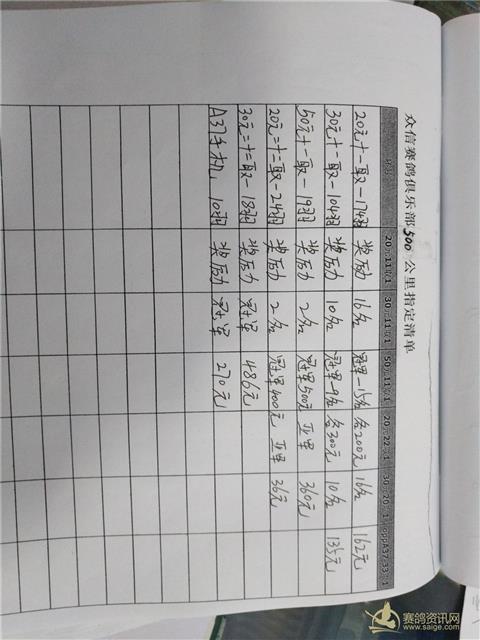 众信赛鸽俱乐部500公里指定清单
20元11取1 30元11取1 50元11取1 20元22取1 30元20取1 oppA37 33取1
20元十一取一 174羽 奖励 16名 冠军-15名各200元 16名 162元
30元十一取一 104羽 奖励 10名 冠军-9名各300元 10名 135元
50元十一取一 19羽 奖励 2名 冠军500元 亚军 360元
20元=十二取一 24羽 奖励 2名 冠军400元 亚军 36元
30元=十二取一 18羽 奖励 冠军 486元
A37手机 10羽 奖励 冠军 270元
赛鸽资讯网
www.saige.com